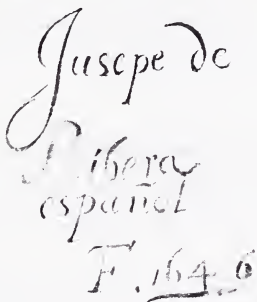 Jusepe de
Ribera
español
F. 1646